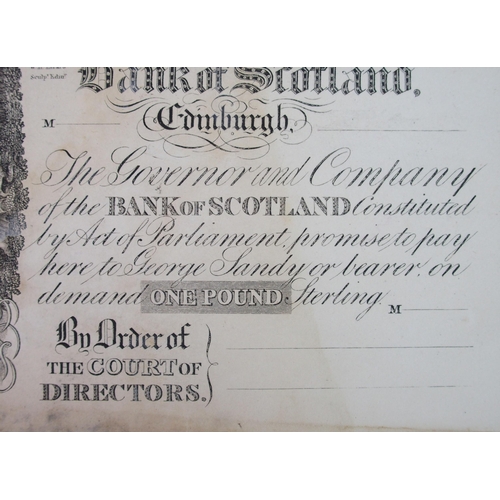 Sculpt. Edinr.
Bank of Scotland,
M
Edinburgh,
The Governor and Company
of the BANK OF SCOTLAND Constituted
by Act of Parliament, promise to pay
here to George Sandy or bearer, on
demand ONE POUND Sterling
M
By Order of
THE COURT OF
DIRECTORS.